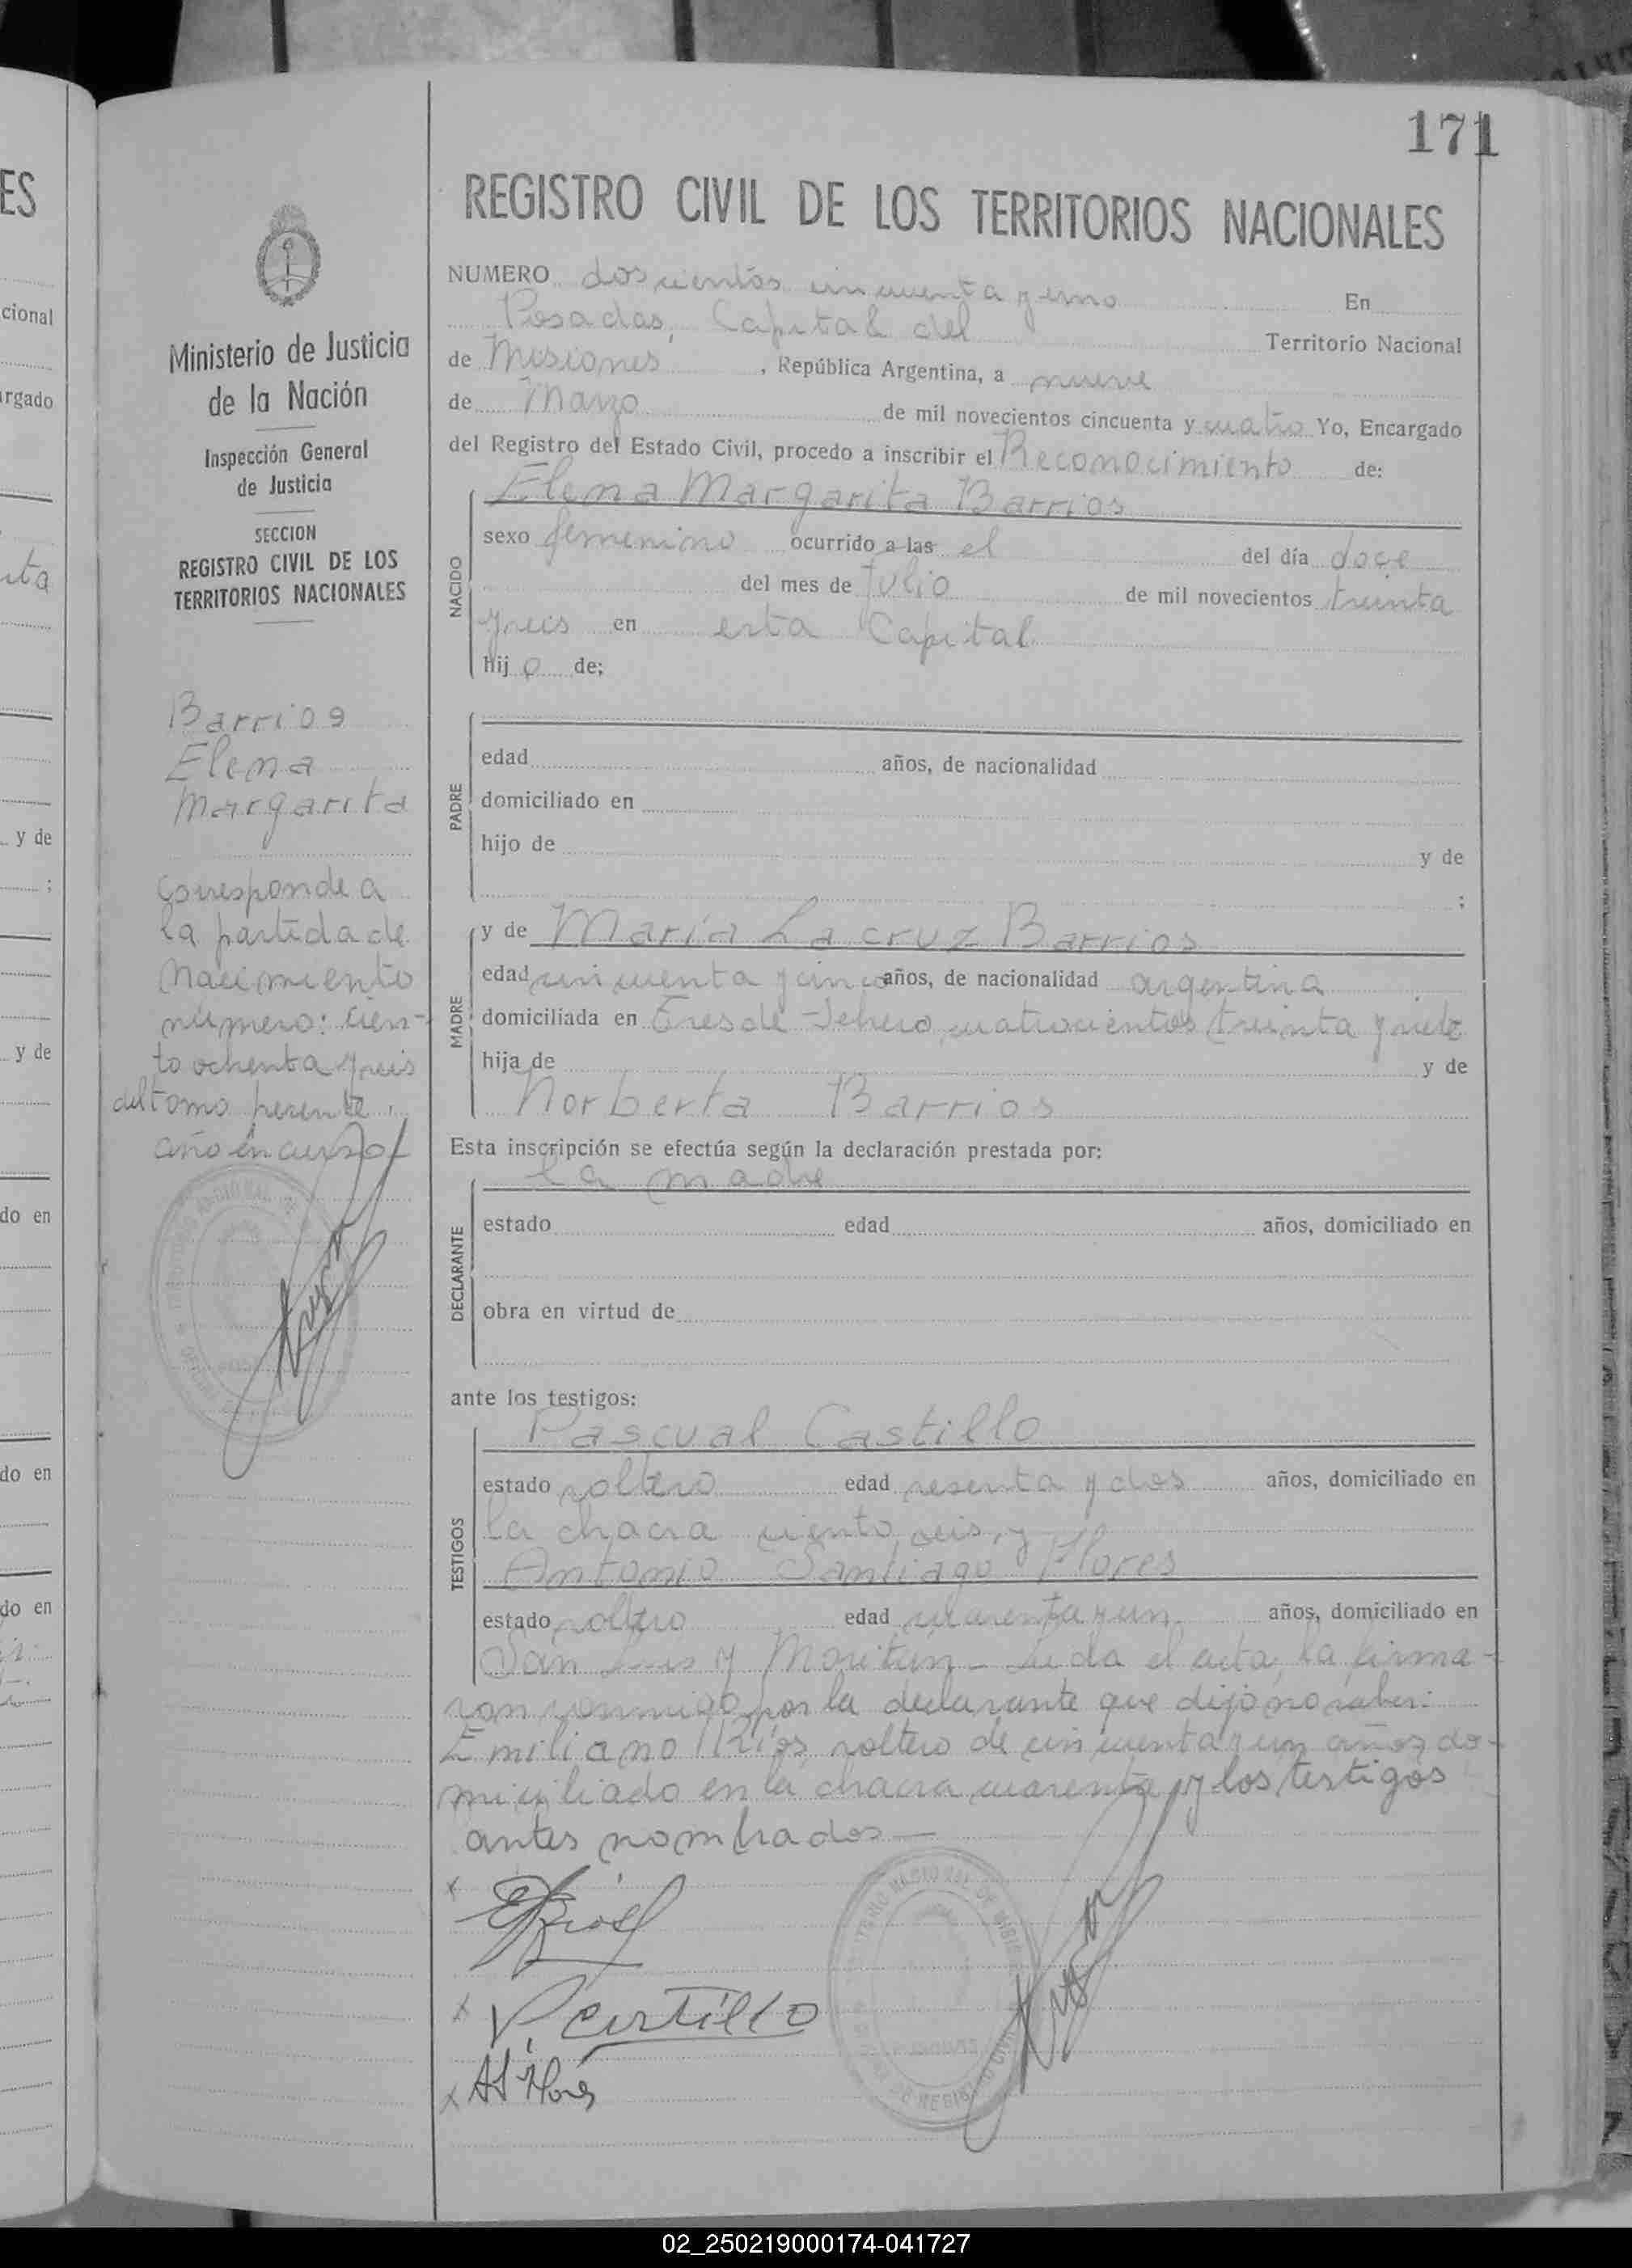 171
REGISTRO CIVIL DE LOS TERRITORIOS NACIONALES
Ministerio de Justicia
de la Nación
Inspección General
de Justicia
SECCION
REGISTRO CIVIL DE LOS
TERRITORIOS NACIONALES
Barrios
Elena
Margarita
Corresponde a
la partida de
nacimiento
número: cien-
to ochenta y seis
del tomo presente,
año en curso
NUMERO doscientos cincuenta y uno En
Posadas, Capital del Territorio Nacional
de Misiones, República Argentina, a nueve
de Marzo de mil novecientos cincuenta y cuatro Yo, Encargado
del Registro del Estado Civil, procedo a inscribir el Reconocimiento de:
Elena Margarita Barrios
NACIDO
sexo femenino ocurrido a las el del día doce
del mes de Julio de mil novecientos treinta
y seis en esta Capital
hij o de;
PADRE
edad años, de nacionalidad
domiciliado en
hijo de y de
;
MADRE
y de María Lacruz Barrios
edad cincuenta y cinco años, de nacionalidad argentina
domiciliada en Tres de Febrero cuatrocientos treinta y siete
hija de y de
Norberta Barrios
Esta inscripción se efectúa según la declaración prestada por:
la madre
DECLARANTE
estado edad años, domiciliado en
obra en virtud de
ante los testigos:
TESTIGOS
Pascual Castillo
estado soltero edad sesenta y dos años, domiciliado en
la chacra ciento seis, y
Antonio Santiago Flores
estado soltero edad cuarenta y un años, domiciliado en
San Luis y Moritán - Leída el acta, la firma-
ron conmigo por la declarante que dijo no saber:
Emiliano Ríos soltero de cincuenta y un años do-
miciliado en la chacra cuarenta y los testigos
antes nombrados —
x ERíos
x P. Castillo
x AS Flores
ES
cional
rgado
y de
;
y de
do en
do en
do en
02_250219000174-041727